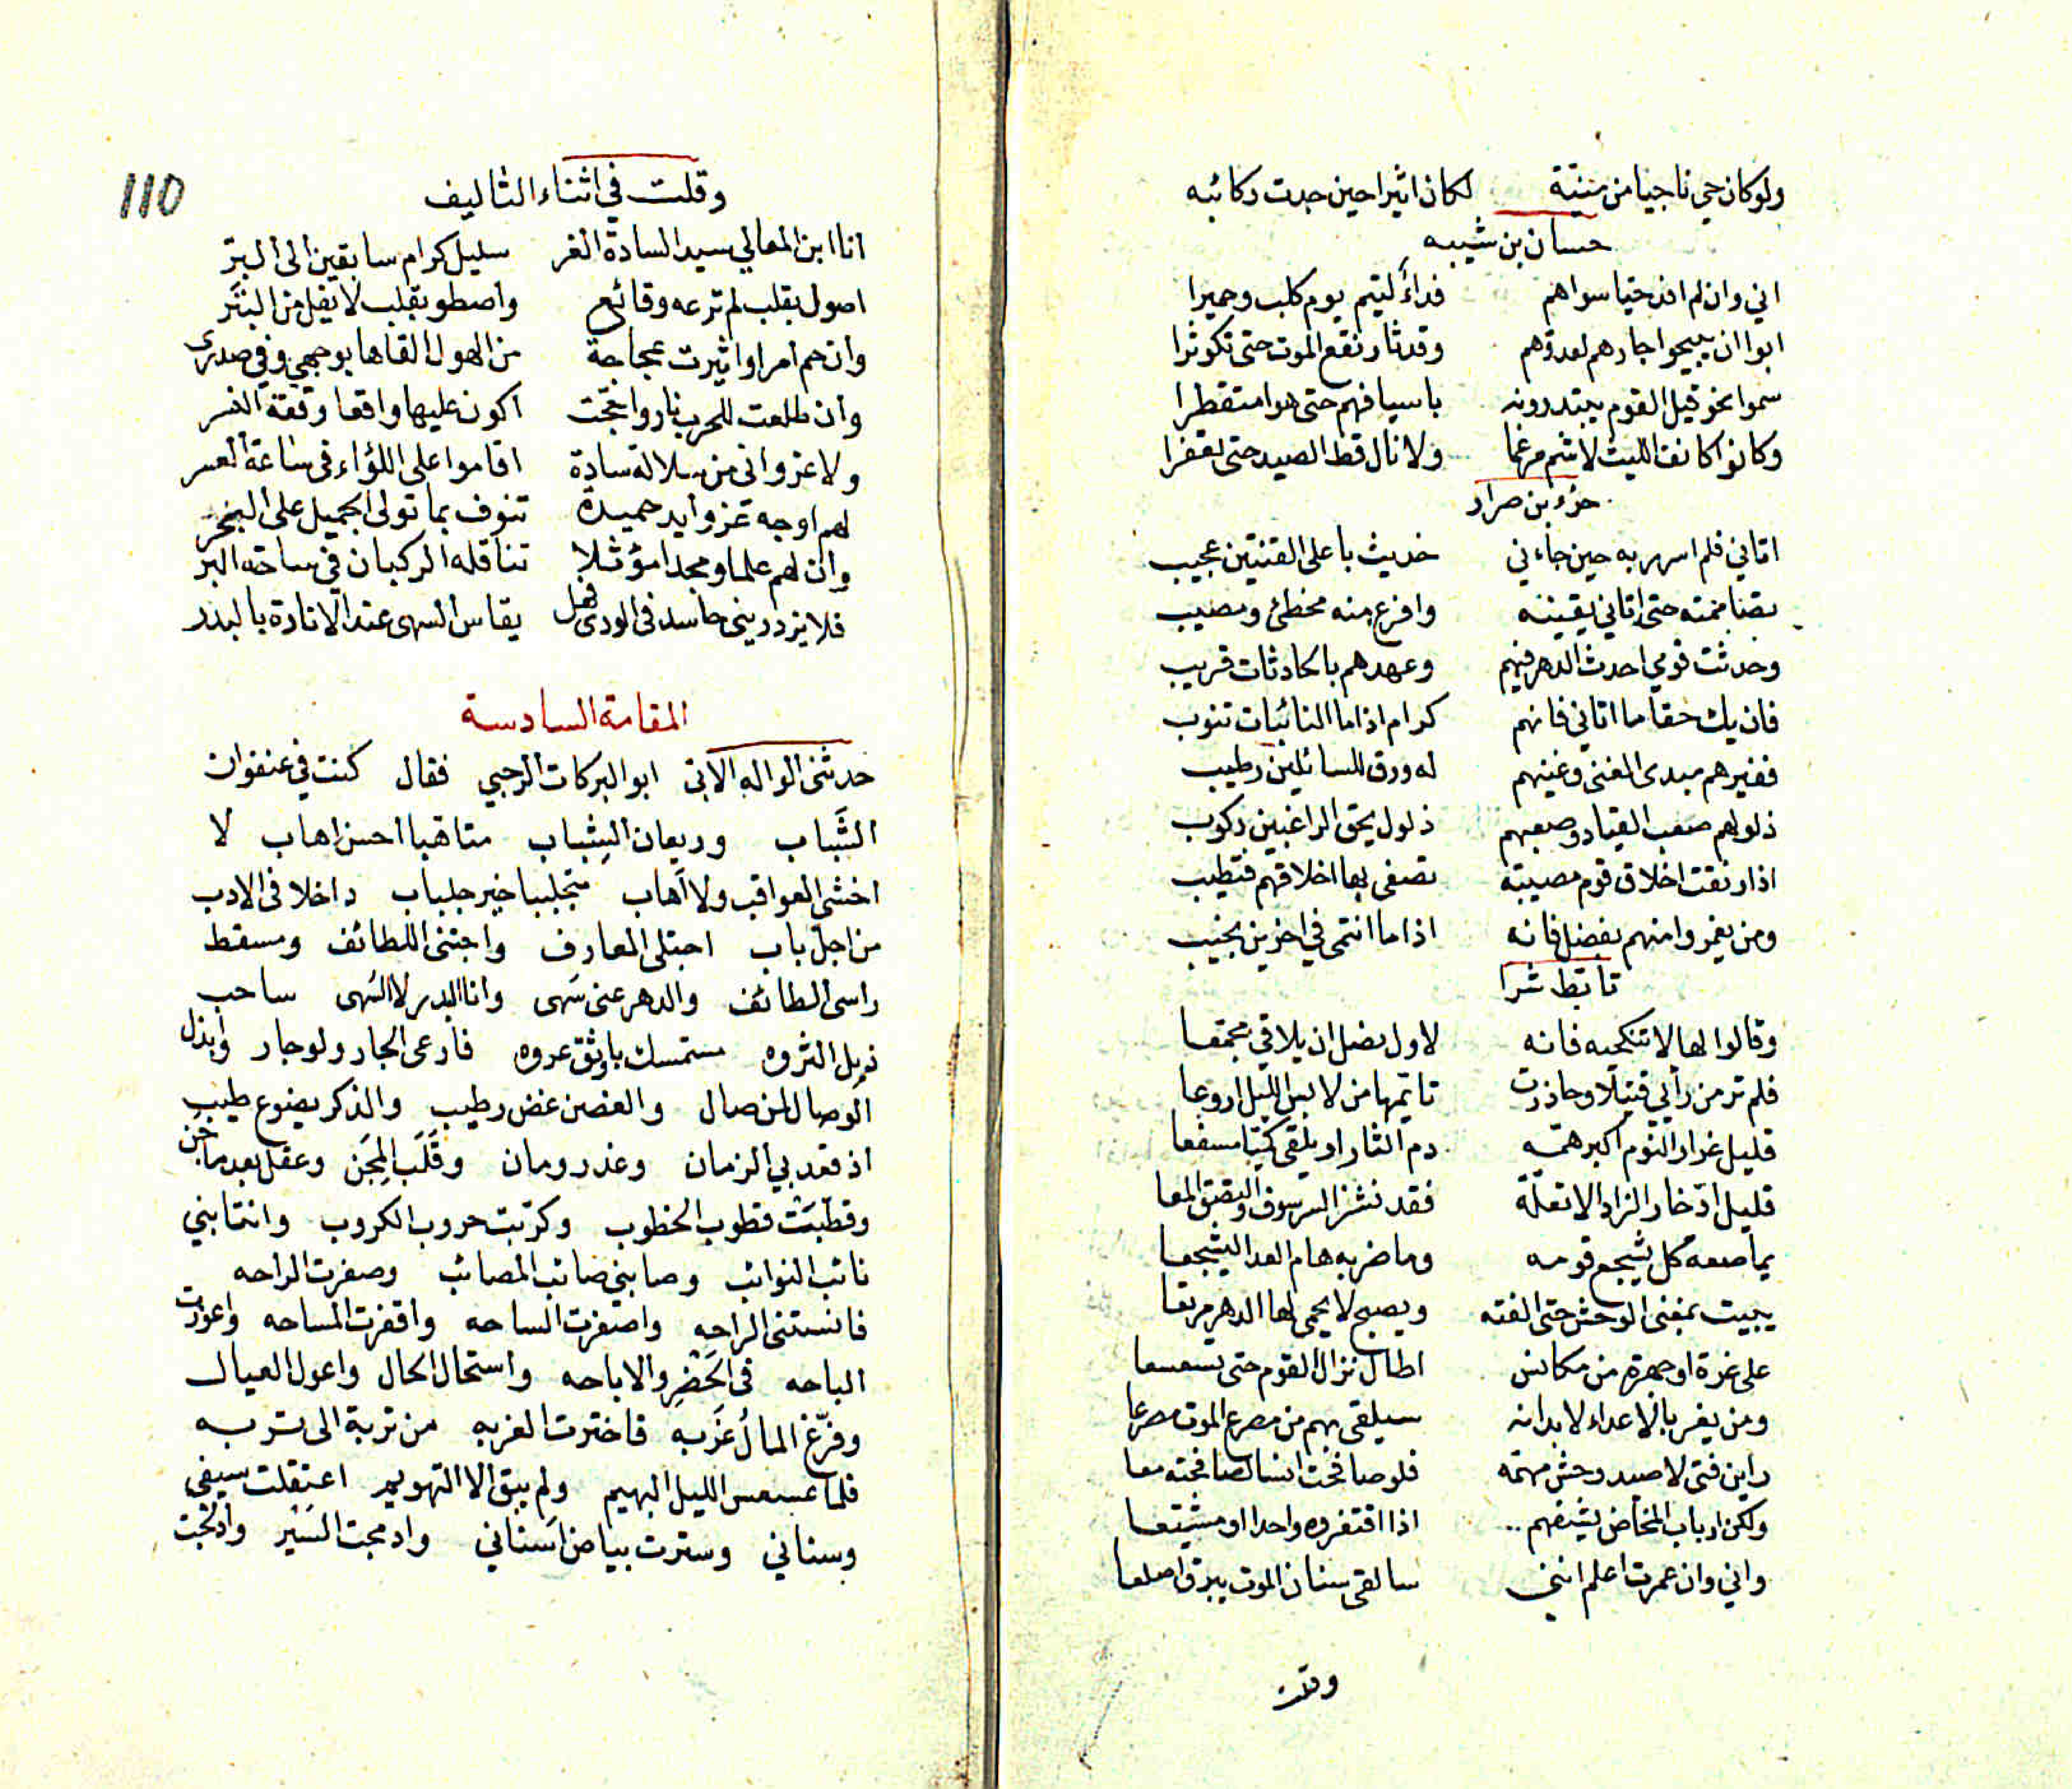 ولو كان حي ناجيا من منية لكان اثيرا حين جدت ركائبه
حسان بن شيبه
اني وان لم افد حيا سواهم فداءً لتيم يوم كلب وحميرا
ابوا ان يبيحوا جارهم لعدوهم وقد ثار نقع الموت حتى تكوثرا
سموا نحو قيل القوم يبتدرونه باسيافهم حتى هوا متقطرا
وكانوا كانف الليث لا شم مرغما ولا نال قط الصيد حتى تعفرا
حزء بن ضرار
اتاني فلم اسرر به حين جاءني حديث باعلى القنتين عجيب
تصاممته حتى اتاني يقينه وافزع منه مخطئ ومصيب
وحدثت قومي احدث الدهر فيهم وعهدهم بالحادثات قريب
فان يك حقا ما اتاني فانهم كرام اذا ما النائبات تنوب
فقيرهم مبدى الغنى وغنيهم له ورق للسائلين رطيب
ذلولهم صعب القياد وصعبهم ذلول بحق الراغبين ركوب
اذا رنقت اخلاق قوم مصيبة تصفى بها اخلاقهم فتطيب
ومن يغمروا منهم بفضل فانه اذا ما انتمى في اخرين نجيب
تابط شرا
وقالوا لها لا تنكحيه فانه لاول نصل ان يلاقي مجمعا
فلم تر من رأي فتيلا وحاذرت تايمها من لابس الليل اروعا
قليل غرار النوم اكبر همه دم الثار او يلقى كميا مسفعا
قليل ادخار الزاد الا تعلة فقد نشز الشرسوف والتصق المعا
يماصعه كل يشجع قومه وما ضربه هام العدا ليشجعا
يبيت بمغنى الوحش حتى الفنه ويصبح لا يحمى لها الدهر مرتعا
على غرة او جهرة من مكانس اطال نزال القوم حتى تسعسعا
ومن يغر بالاعداء لا بد انه سيلقى بهم من مصرع الموت مصرعا
راين فتى لا صيد وحش يهمه فلو صافحت انسا لصافحنه معا
ولكن ارباب المخاض يشفهم اذا اقتفروه واحدا او مشيعا
واني وان عمرت اعلم انني سالقى سنان الموت يبرق اصلعا
وقلت
110
وقلت في اثناء التاليف
انا ابن المعالي سيد السادة الغر سليل كرام سابقين الى البر
اصول بقلب لم ترعه وقائع واصطو بقلب لا يفل من البتر
وان حم امر او اثيرت عجاجة من الهول القاها بوجهي وفي صدري
وان طلعت للحرب نار واججت اكون عليها واقعا وقعة النسر
ولا غرو اني من سلالة سادة اقاموا على اللؤاء في ساعة العسر
لهم اوجه غر وايد حميدة تنوف بما تولى الجميل على البحر
وان لهم علما ومجدا مؤثلا تناقله الركبان في ساحة البر
فلا يزدريني حاسد في الورى فهل يقاس السهى عند الانارة بالبدر
المقامة السادسة
حدثني الواله الابي ابو البركات الرحبي فقال كنت في عنفوان
الشَباب وريعان الشِباب متاهبا احسن اهاب لا
اخشى العواقب ولا اهاب متجلببا خير جلباب داخلا في الادب
من اجل باب اجتلى المعارف واجتنى اللطائف ومسقط
راسى الطائف والدهر عنى سَهى وانا البدر لا السُهى ساحب
ذيل الثروه مستمسك باوثق عروه فارعى الجار ولو جار وابذل
الوصال لمن صال والغصن غض رطيب والذكر يضوع طيب
اذ قعد بي الزمان وغدر ومان وقَلَب المِجَن وعقل بعد ما جن
وقطبت قطوب الخطوب وكرثت حروب الكروب وانتابني
نائب النوائب وصابني صائب المصائب وصفرت الراحه
فانستني الراحه واصفرت الساحه واقفرت المساحه واعوزت
الباحه في الحَضْرِ والاباحه واستحال الحال واعول العيال
وفرّغ المالُ غَربه فاخترت الغربه من تربة الى تربه
فلما عسعس الليل البهيم ولم يبق الا التهويم اعتقلت سيفي
وسناني وسترت بياض اسناني وادمجت السَيْر وادلجت